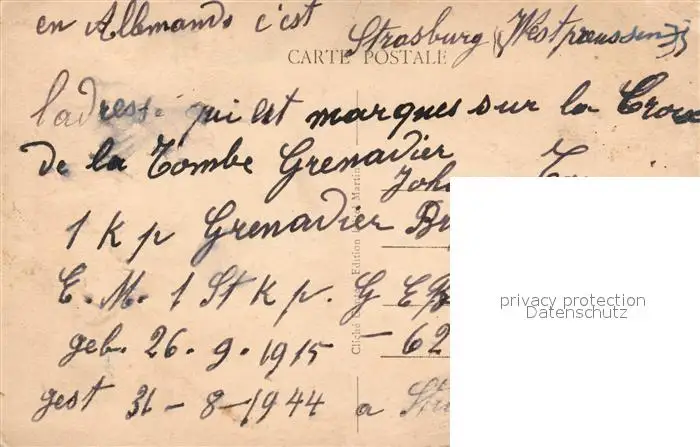 en Allemands c'est
Strasburg (Westpreussen)
CARTE POSTALE
l'adresse qui est marques sur la Croix
de la Tombe Grenadier
Joh
1 K p Grenadier
E. M. 1 St K p. G E B
geb. 26. 9. 1915 – 62
gest 31 – 8 – 1944 a
Edition
Martin
privacy protection
Datenschutz